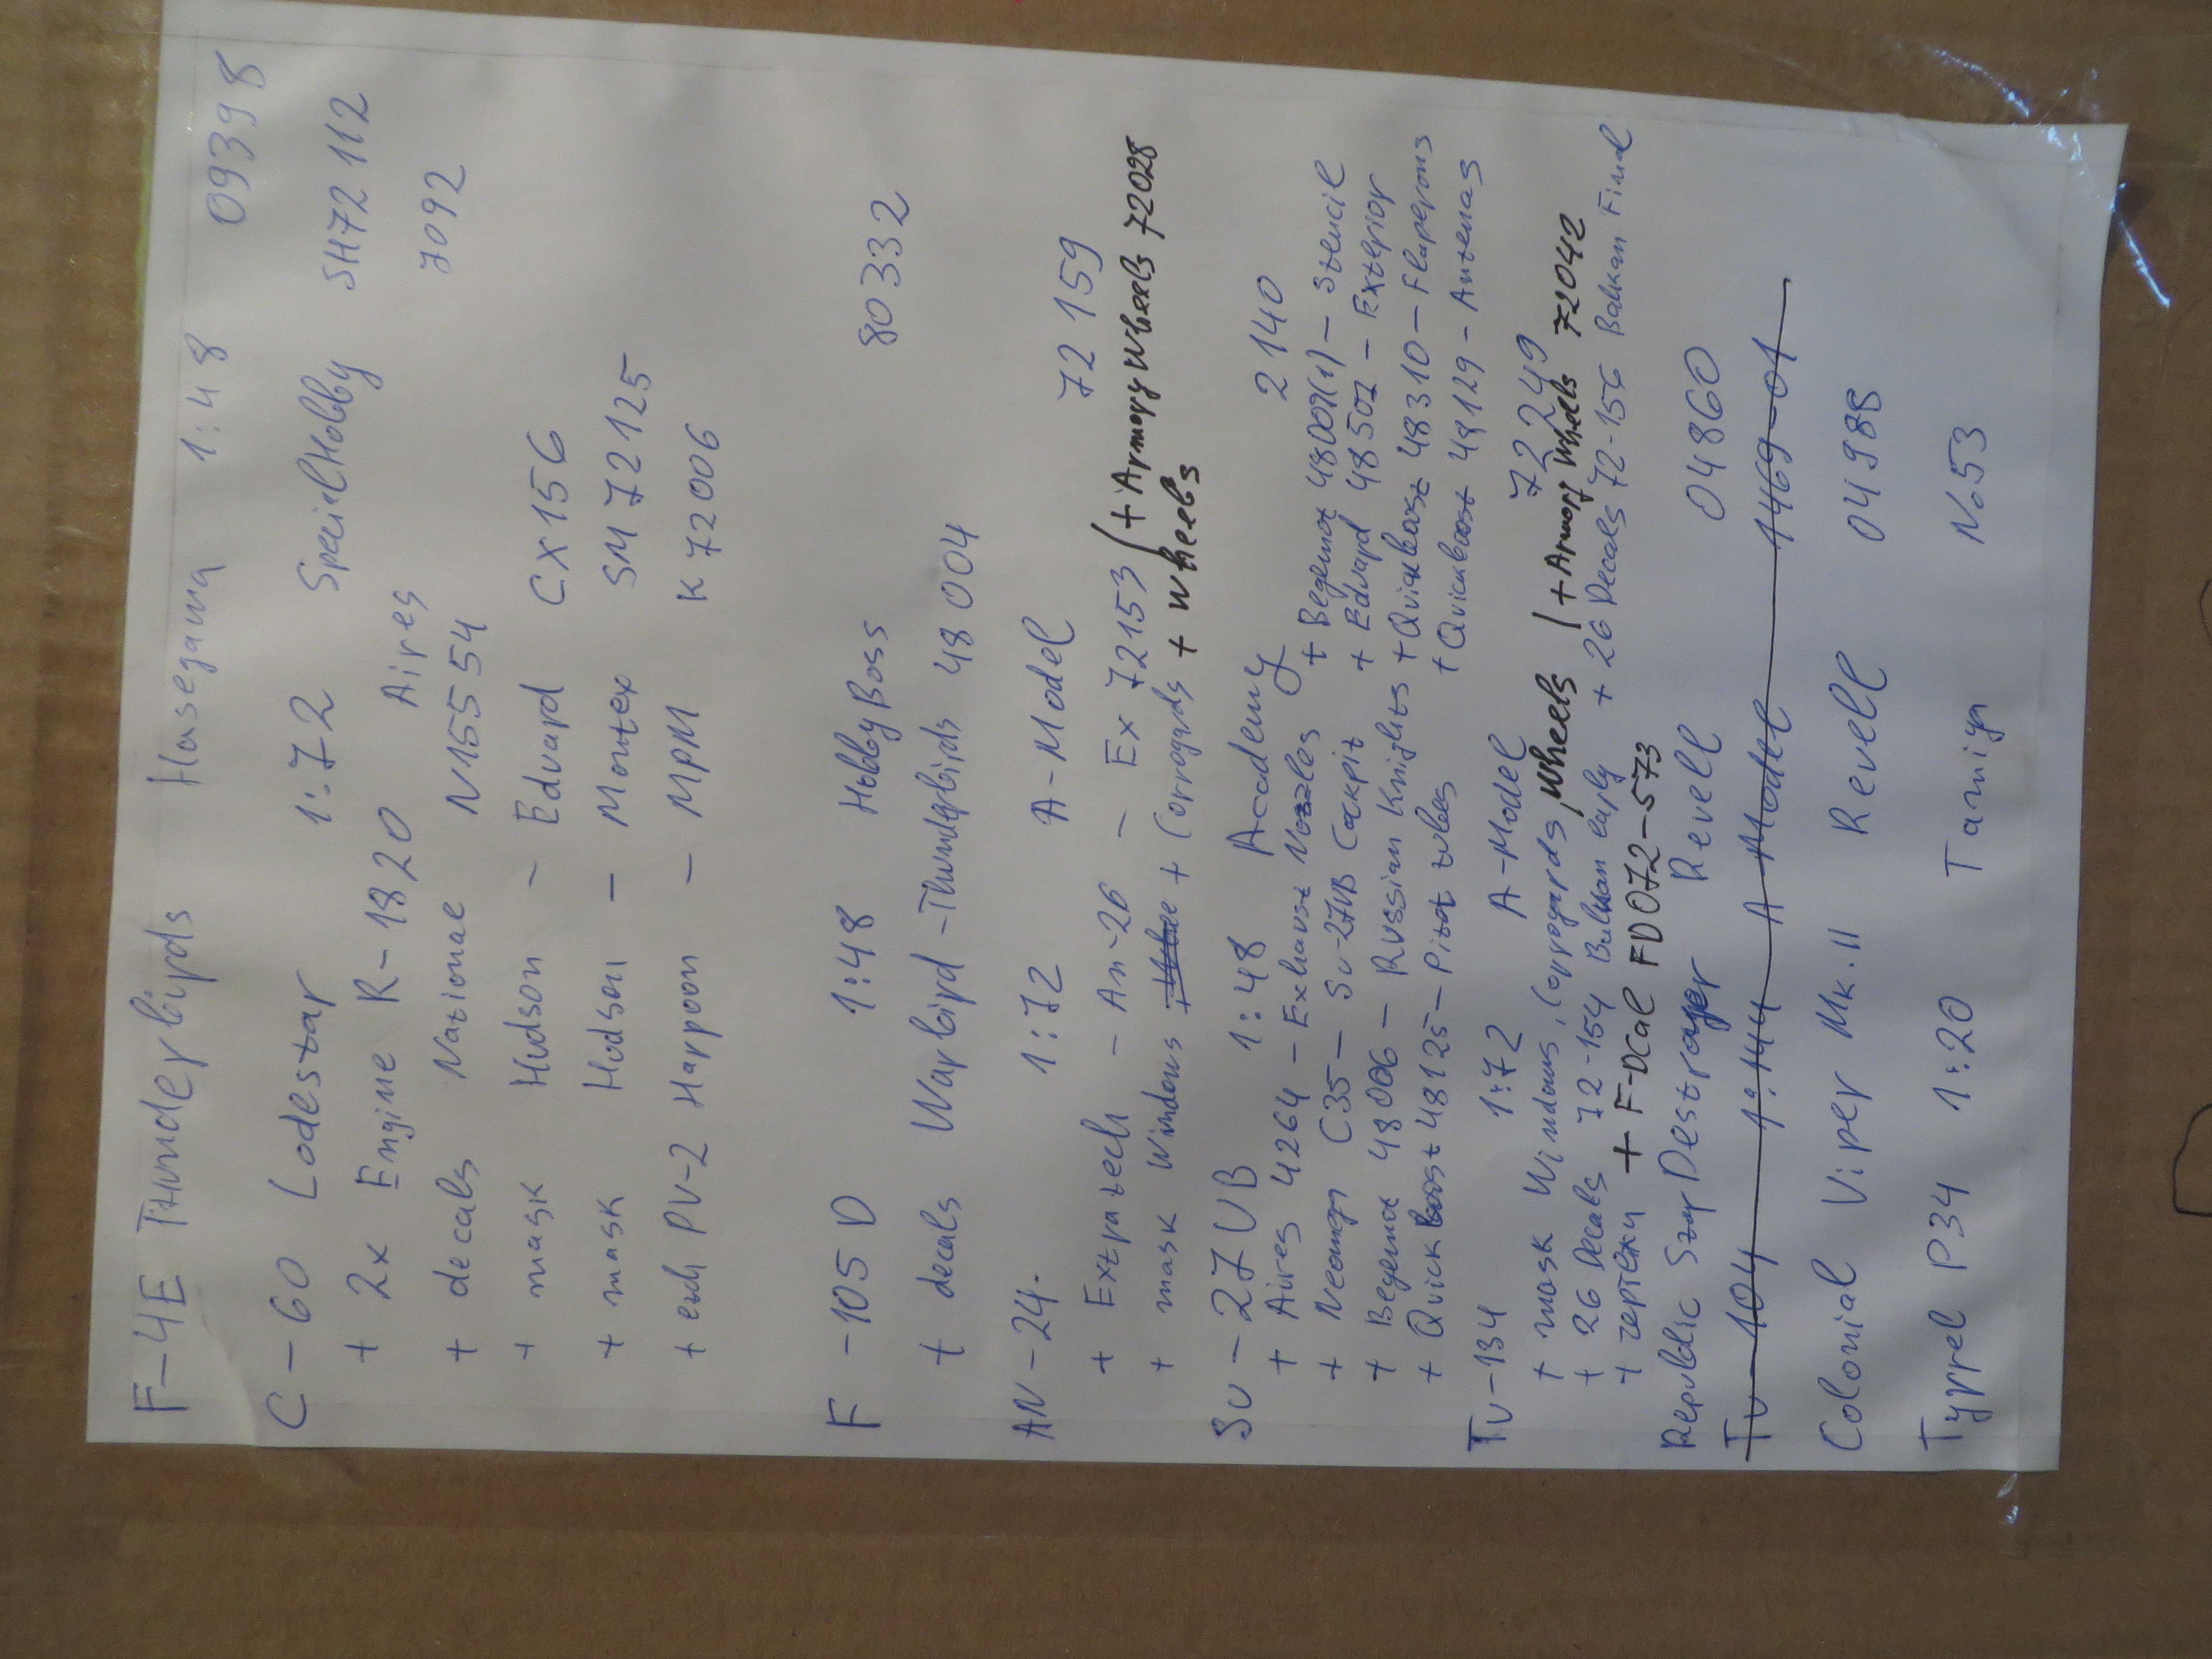 F-4E Thunderbirds Hasegawa 1:48 09398
C-60 Lodestar 1:72 SpecialHobby SH72 112
+ 2x Engine R-1820 Aires 7092
+ decals Nationale N15554
+ mask Hudson - Eduard CX156
+ mask Hudson - Montex SM 72125
+ ech PV-2 Harpoon - MPM K 72006
F-105 D 1:48 HobbyBoss 80332
+ decals Warbird - Thunderbirds 48 004
AN-24. 1:72 A-Model 72 159
+ Extratech - An-26 - Ex 72153 (+ Armory Wheels 72028
+ mask Windows + Corrogards + wheels
Su-27UB 1:48 Academy 2140
+ Aires 4264 - Exhaust Nozzles + Begemot 48007(1) - Stencil
+ Neomega C35 - Su-27UB Cockpit + Eduard 48502 - Exterior
+ Begemot 48006 - Russian Knights + Quickboost 48310 - Flaperons
+ Quickboost 48125 - Pitot tubes + Quickboost 48129 - Antenas
Tu-134 1:72 A-Model 72249
+ mask Windows, Corrogards, wheels (+ Armory Wheels 72042
+ 26 Decals 72-154 Bulkan early + 26 Decals 72-156 Balkan Final
+ F-Dcal FD072-573
Republic Star Destroyer Revell 04860
Tu-104 1:144 A-Model 1469-01
Colonial Viper Mk.II Revell 04988
Tyrrel P34 1:20 Tamiya No53